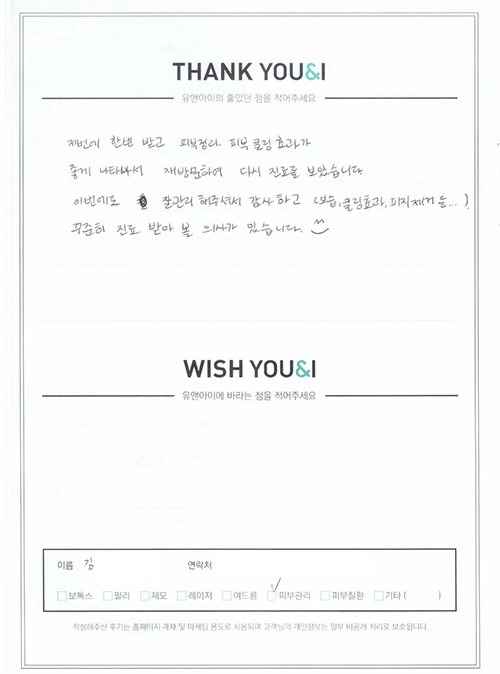 THANK YOU&I
유앤아이의 좋았던 점을 적어주세요
저번에 한번 받고 피부정리, 피부 쿨링 효과가
좋게 나타나서 재방문하여 다시 진료를 보았습니다
이번에도 잘관리 해주셔서 감사하고 (보습, 쿨링효과, 피지제거 등...)
꾸준히 진료 받아 볼 의사가 있습니다.
WISH YOU&I
유앤아이에 바라는 점을 적어주세요
이름 김 연락처
보톡스 필러 제모 레이저 여드름 피부관리 피부질환 기타 ( )
작성해주신 후기는 홈페이지 게재 및 마케팅 용도로 사용되며 고객님의 개인정보는 일부 비공개 처리로 보호됩니다.